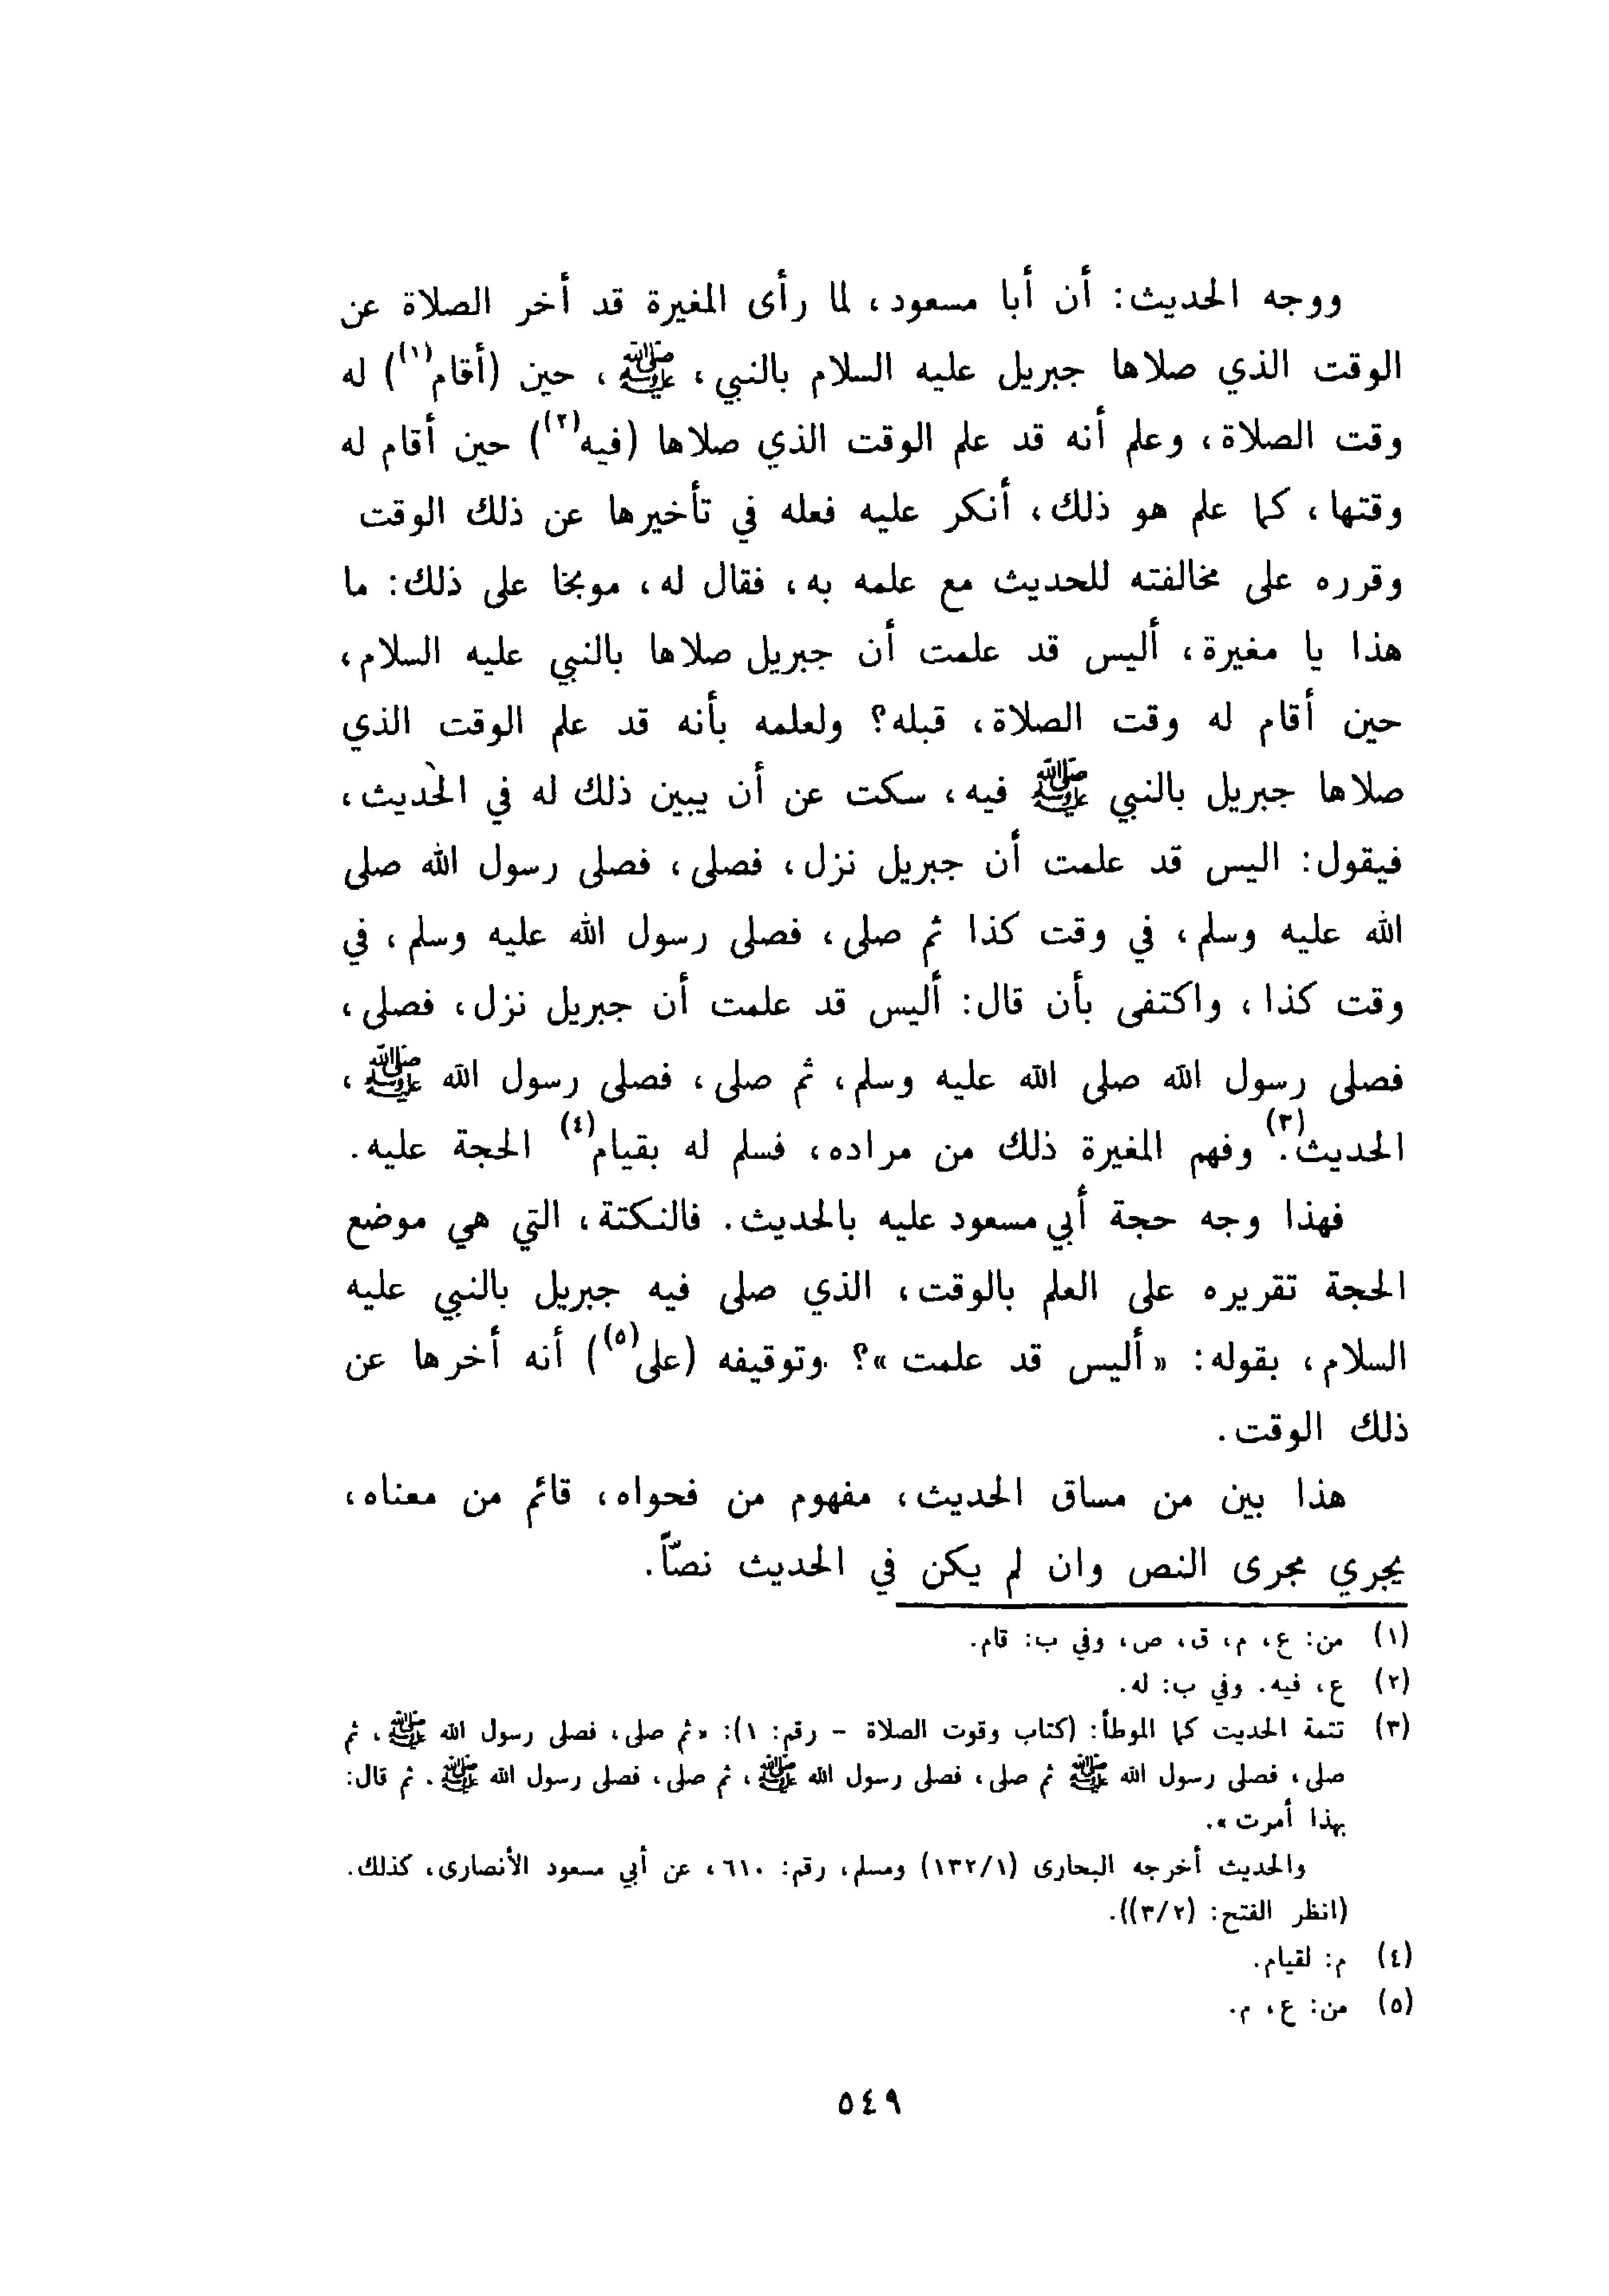 ووجه الحديث: أن أبا مسعود، لما رأى المغيرة قد أخر الصلاة عن
الوقت الذي صلاها جبريل عليه السلام بالنبي، ﷺ، حين (أقام(١)) له
وقت الصلاة، وعلم أنه قد علم الوقت الذي صلاها (فيه(٢)) حين أقام له
وقتها، كما علم هو ذلك، أنكر عليه فعله في تأخيرها عن ذلك الوقت
وقرره على مخالفته للحديث مع علمه به، فقال له، موبخا على ذلك: ما
هذا يا مغيرة، أليس قد علمت أن جبريل صلاها بالنبي عليه السلام،
حين أقام له وقت الصلاة، قبله؟ ولعلمه بأنه قد علم الوقت الذي
صلاها جبريل بالنبي ﷺ فيه، سكت عن أن يبين ذلك له في الحديث،
فيقول: اليس قد علمت أن جبريل نزل، فصلى، فصلى رسول الله صلى
الله عليه وسلم، في وقت كذا ثم صلى، فصلى رسول الله عليه وسلم، في
وقت كذا، واكتفى بأن قال: أليس قد علمت أن جبريل نزل، فصلى،
فصلى رسول الله صلى الله عليه وسلم، ثم صلى، فصلى رسول الله ﷺ،
الحديث(٣). وفهم المغيرة ذلك من مراده، فسلم له بقيام(٤) الحجة عليه.
فهذا وجه حجة أبي مسعود عليه بالحديث. فالنكتة، التي هي موضع
الحجة تقريره على العلم بالوقت، الذي صلى فيه جبريل بالنبي عليه
السلام، بقوله: «أليس قد علمت»؟ وتوقيفه (على(٥)) أنه أخرها عن
ذلك الوقت.
هذا بين من مساق الحديث، مفهوم من فحواه، قائم من معناه،
يجري مجرى النص وان لم يكن في الحديث نصّاً.
(١) من: ع، م، ق، ص، وفي ب: قام.
(٢) ع، فيه. وفي ب: له.
(٣) تتمة الحديت كما الموطأ: (كتاب وقوت الصلاة - رقم: ١): «ثم صلى، فصلى رسول الله ﷺ، ثم
صلى، فصلى رسول الله ﷺ ثم صلى، فصلى رسول الله ﷺ، ثم صلى، فصلى رسول الله ﷺ. ثم قال:
بهذا أمرت».
والحديث أخرجه البحارى (١٣٢/١) ومسلم، رقم: ٦١٠، عن أبي مسعود الأنصارى، كذلك.
(انظر الفتح: (٣/٢)).
(٤) م: لقيام.
(٥) من: ع، م.
٥٤٩